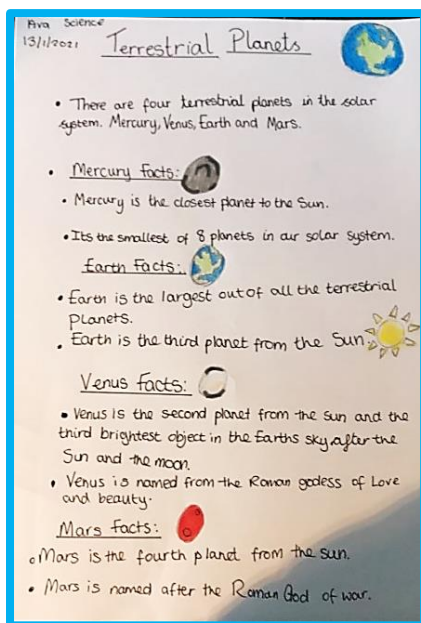 Ava Science
13/1/2021
Terrestrial Planets
• There are four terrestrial planets in the solar
system. Mercury, Venus, Earth and Mars.
• Mercury Facts:
• Mercury is the closest planet to the Sun.
• Its the smallest of 8 planets in our solar system.
Earth Facts:
• Earth is the largest out of all the terrestrial
Planets.
• Earth is the third planet from the Sun.
Venus Facts:
• Venus is the second planet from the sun and the
third brightest object in the Earths sky, after the
Sun and the moon.
• Venus is named from the Roman godess of Love
and beauty.
Mars Facts:
• Mars is the fourth planet from the sun.
• Mars is named after the Roman God of war.